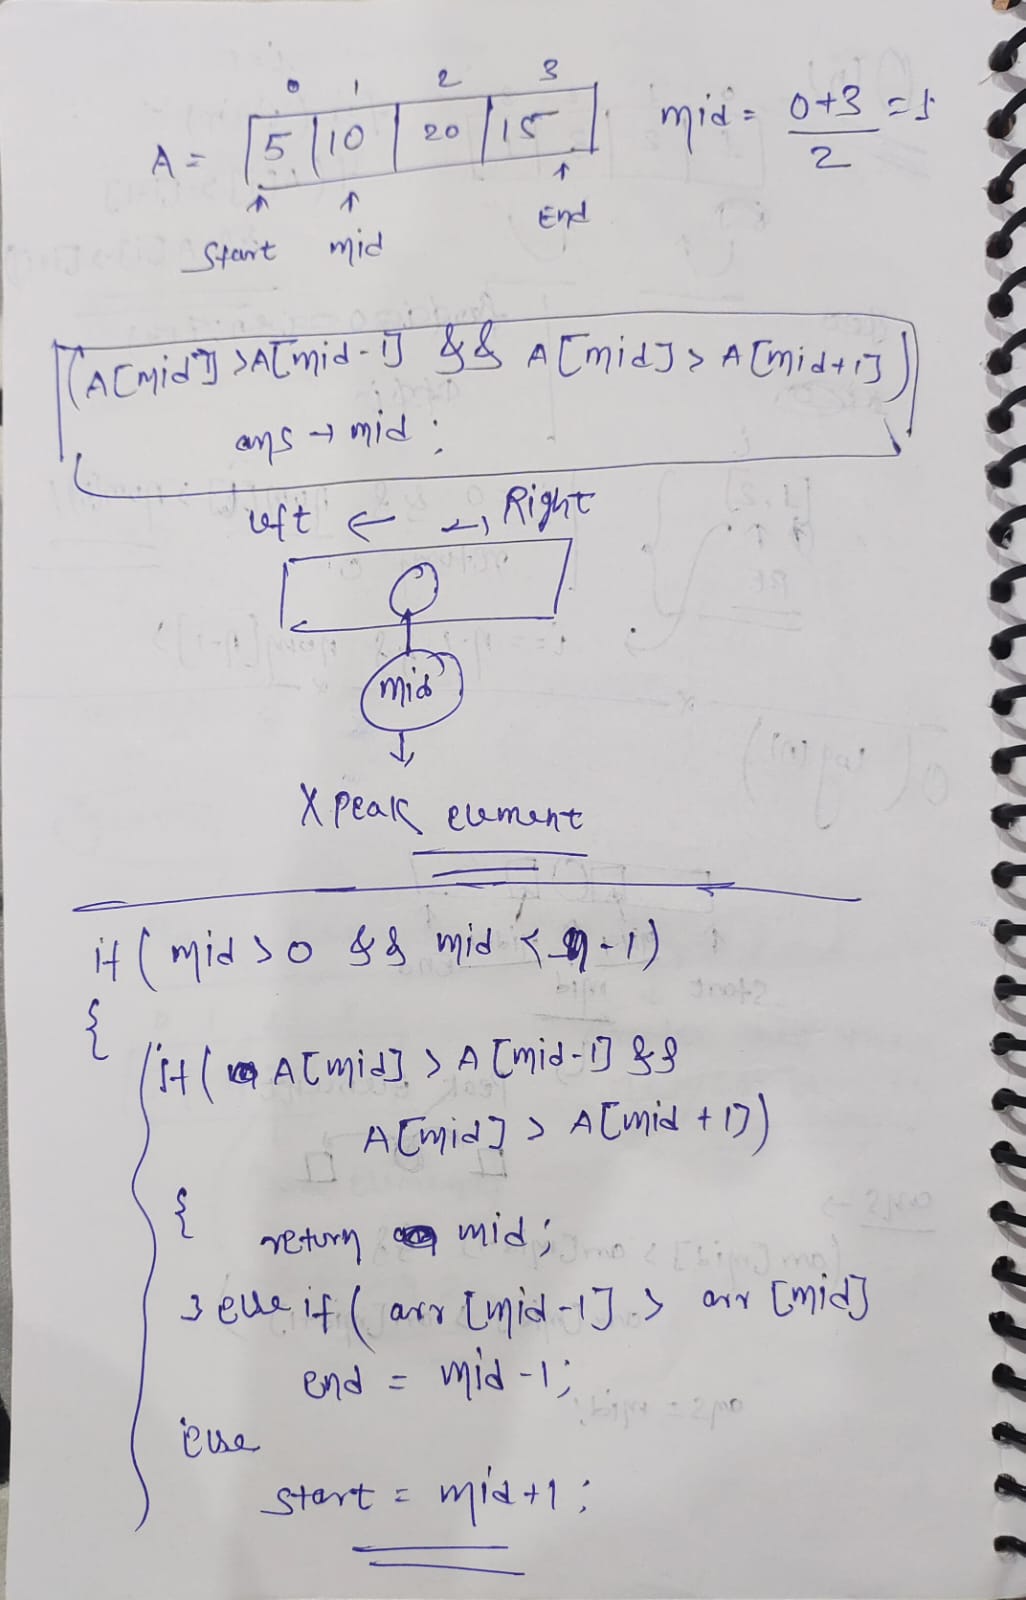 0 1 2 3
A = 5 10 20 15 mid = 0+3 = 1
2
Start mid End
(A[mid] > A[mid-1] && A[mid] > A[mid+1])
ans → mid ;
left ← → Right
mid
X peak element
if ( mid > 0 && mid < n-1)
{
if ( A[mid] > A[mid-1] &&
A[mid] > A[mid+1])
{
return mid;
} else if ( arr [mid-1] > arr [mid]
end = mid-1;
else
start = mid+1;